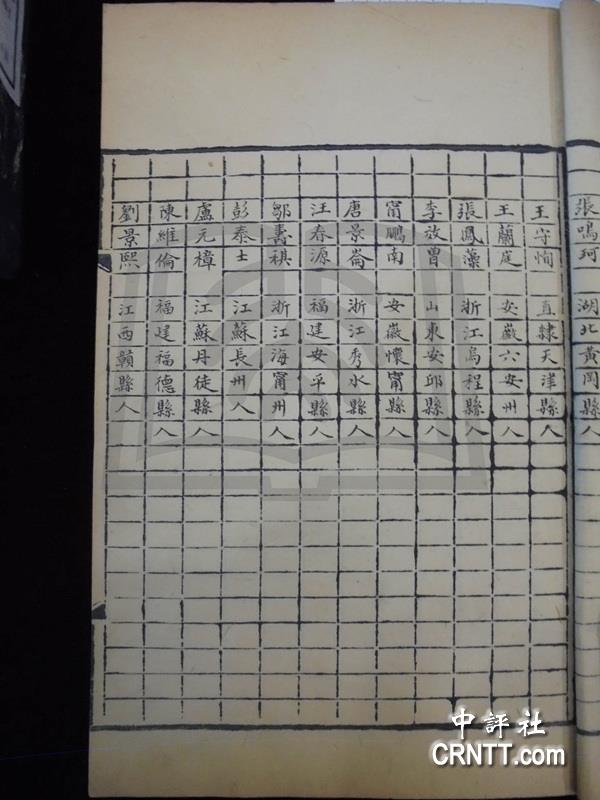 張鳴珂 湖北黃岡縣人
王守恂 直隸天津縣人
王蘭庭 安徽六安州人
張鳳藻 浙江烏程縣人
李放曾 山東安邱縣人
甯鵬南 安徽懷甯縣人
唐景崙 浙江秀水縣人
汪春源 福建安平縣人
鄒書祺 浙江海甯州人
彭泰士 江蘇長州人
盧元樟 江蘇丹徒縣人
陳維倫 福建福德縣人
劉景熙 江西贛縣人
中評社
CRNTT.com